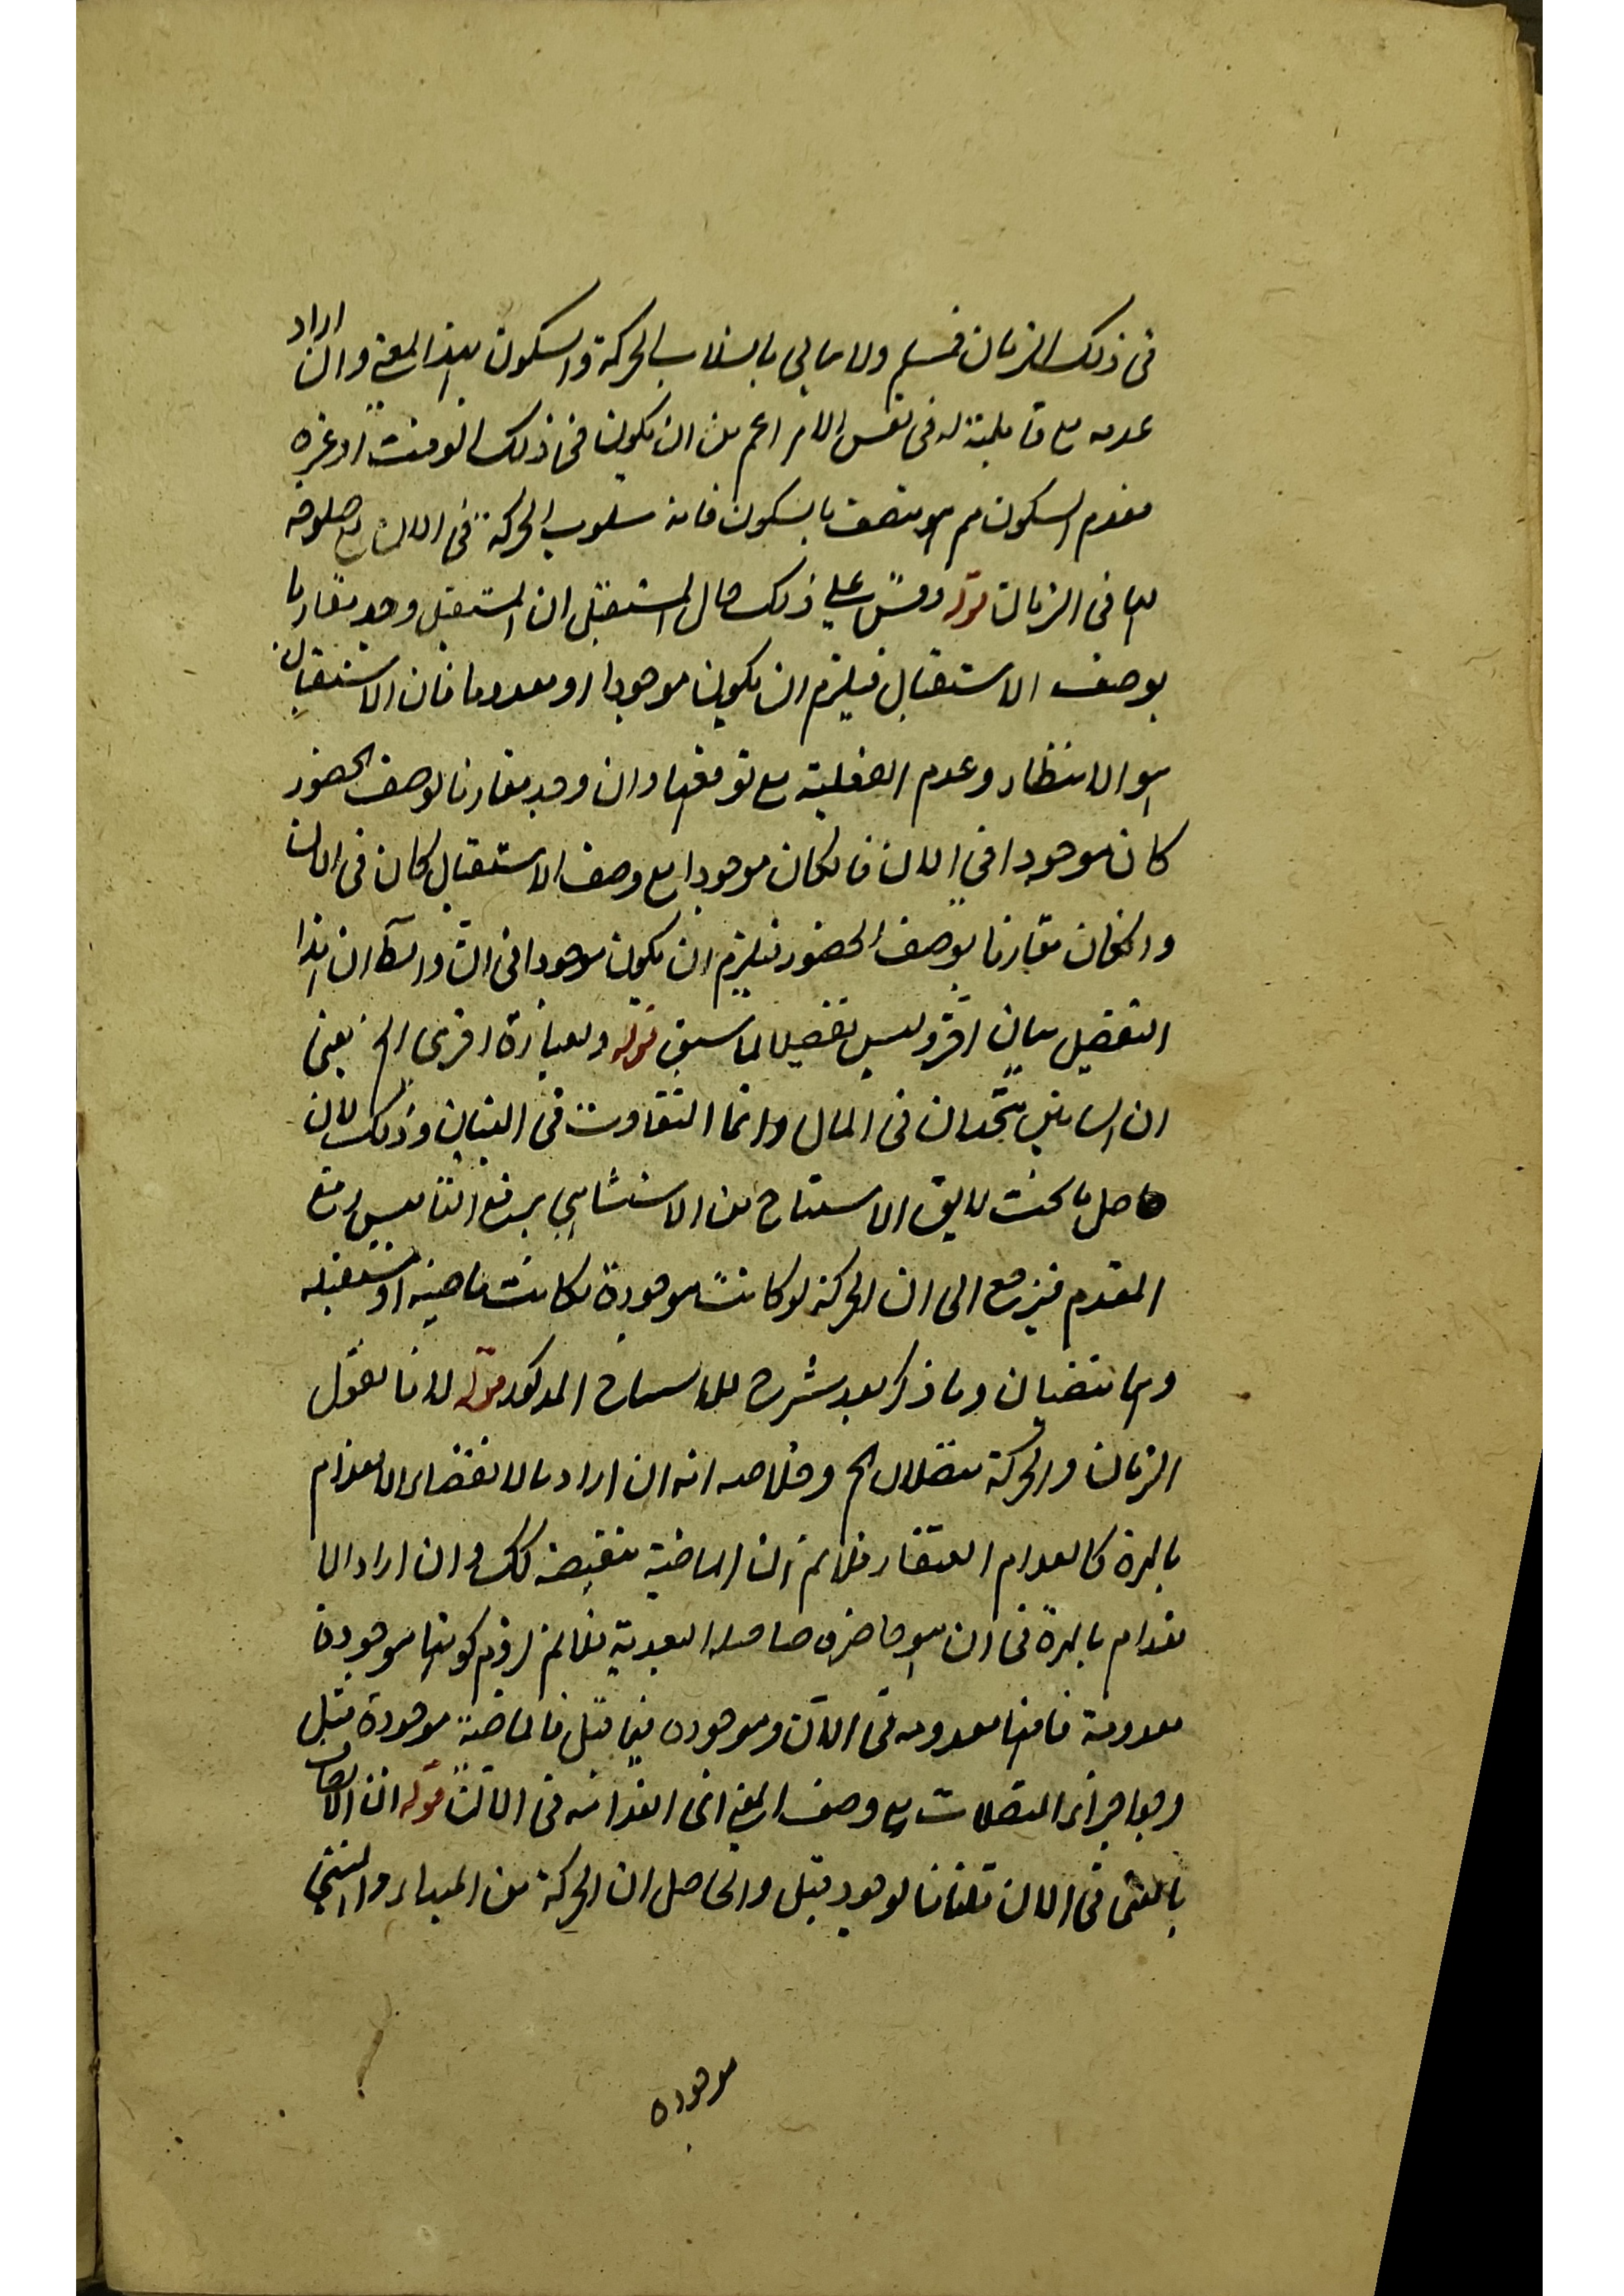 فى ذلك الزمان فمسلم ولا نبالى بانسلاب الحركة والسكون بهذا المعنى وان اراد
عدمه مع قابليته له فى نفس الامر اعم من ان يكون فى ذلك الوقت او غيره
فعدم السكون مم هو متصف بالسكون فانه سلوب الحركة فى الان مع صلوحه
لها فى الزمان قوله وقس على ذلك حال المستقبل ان المستقبل وجد مقارنا
بوصف الاستقبال فيلزم ان يكون موجودا او معدوما فان الاستقبال
هو الانتظار وعدم الفعلية مع توقعها وان وجد مقارنا لوصف الحضور
كان موجودا فى الان فالكان موجودا مع وصف الاستقبال كان فى الان
وانكان مقارنا بوصف الحضور فيلزم ان يكون موجودا فى الان والظ ان هذا
التفصيل بيان آخر وليس تفصيلا لما سبق قوله وبعبارة اخرى الخ يعنى
ان البيانين متحدان فى المال وانما التفاوت فى البيان وذلك لان
حاصل ما تحت لايق الاستنتاج من الاستثنائى برفع التالى رفع
المقدم فيرجع الى ان الحركة لو كانت موجودة لكانت ماضية او مستقبلة
وهما منتفيان وما ذكر بعد شرح للاستنتاج المذكور قوله لانا نقول
الزمان والحركة متصلان الخ وخلاصه انه ان اراد بالانقضاء الانعدام
بالمرة كانعدام العنقاء فلا نم ان الماضية منقضية كك وان اراد الا
نعدام بالمرة فى ان هو حاضره البعدية فلا نم لزوم كونها موجودة
معدومة فانها معدومه فى الان وموجوده فيما قبل فالماضية موجودة قبل
وجوا جزاء المتصلات مع وصف المعنى اى انعدامه فى الان قوله ان الاتصاف
بالمضى فى الان تلفانا لوجود قبل والحاصل ان الحركة من المبداء والمنتهى
موجوده